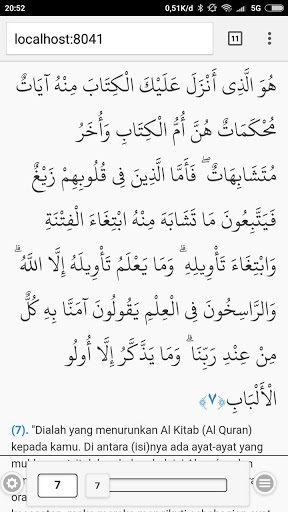 20:52
0,51K/d
5G
localhost:8041
11
هُوَ الَّذِى أَنْزَلَ عَلَيْكَ الْكِتَابَ مِنْهُ آيَاتٌ
مُحْكَمَاتٌ هُنَّ أُمُّ الْكِتَابِ وَأُخَرُ
مُتَشَابِهَاتٌ ۖ فَأَمَّا الَّذِينَ فِى قُلُوبِهِمْ زَيْغٌ
فَيَتَّبِعُونَ مَا تَشَابَهَ مِنْهُ ابْتِغَاءَ الْفِتْنَةِ
وَابْتِغَاءَ تَأْوِيلِهِ ۗ وَمَا يَعْلَمُ تَأْوِيلَهُ إِلَّا اللَّهُ ۗ
وَالرَّاسِخُونَ فِى الْعِلْمِ يَقُولُونَ آمَنَّا بِهِ كُلٌّ
مِنْ عِنْدِ رَبِّنَا ۗ وَمَا يَذَّكَّرُ إِلَّا أُولُو
الْأَلْبَابِ ﴿٧﴾
(7). "Dialah yang menurunkan Al Kitab (Al Quran)
kepada kamu. Di antara (isi)nya ada ayat-ayat yang
7
7